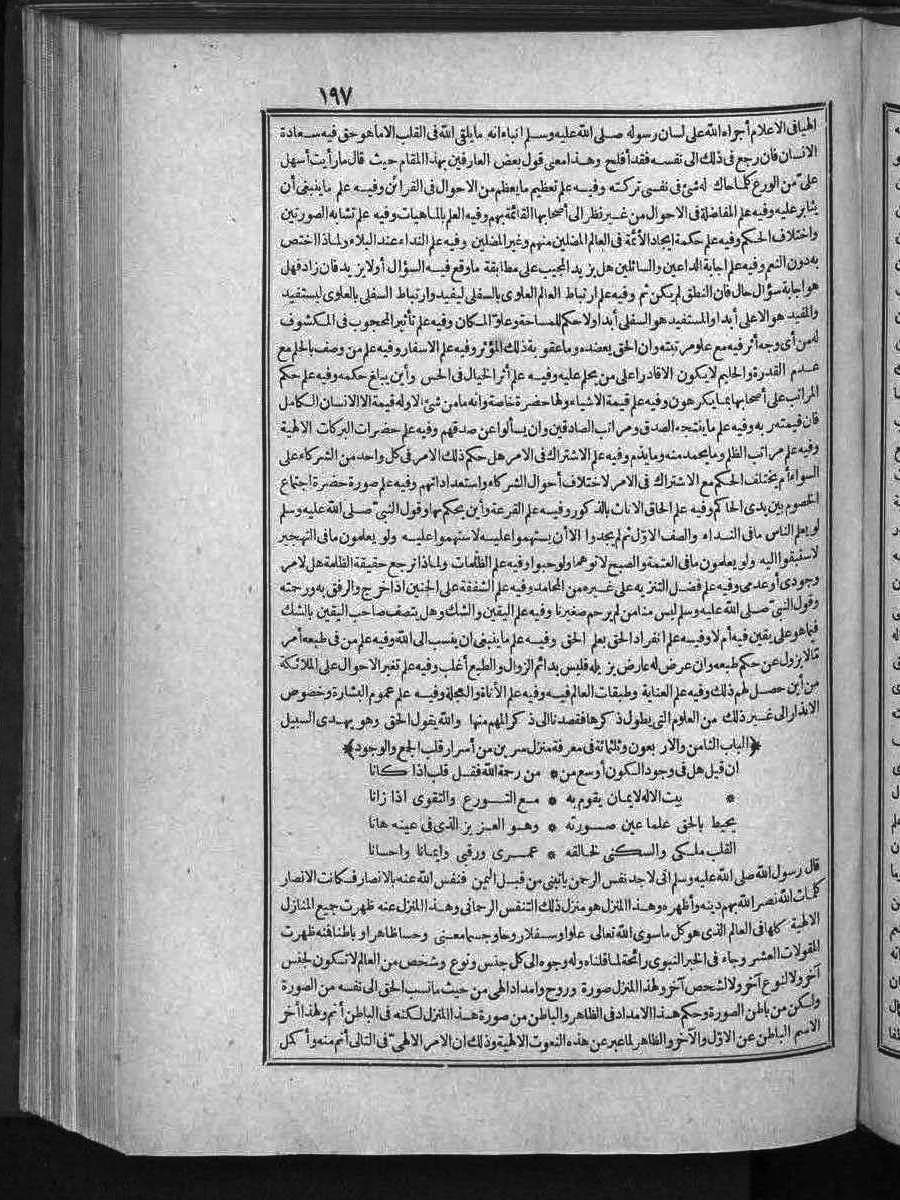 ١٩٧
الهيا في الاعلام أجراه الله على لسان رسوله صلى الله عليه وسلم انباء انه ما يلقى الله في القلب الا ما هو حق فيه سعادة
الانسان فان رجع في ذلك الى نفسه فقد أفلح وهذا معنى قول بعض العارفين بهذا المقام حيث قال ما رأيت أسهل
علىّ من الورع كلما حاك له شئ في نفسي تركته وفيه علم تعظيم ما يعظم من الاحوال في القرائن وفيه علم ما ينبغي أن
يثابر عليه وفيه علم المفاضلة في الاحوال من غير نظر الى أصحابها القائمة بهم وفيه العلم بالماهيات وفيه علم تشابه الصورتين
واختلاف الحكم وفيه علم حكمة ايجاد الأئمة في العالم المضلين منهم وغير المضلين وفيه علم النداء عند البلاء ولماذا اختص
به دون النعم وفيه علم اجابة الداعين والسائلين هل يزيد المجيب على مطابقة ما وقع فيه السؤال أولا يزيد فان زاد فهل
هو اجابة سؤال حال فان النطق لم يكن ثم وفيه علم ارتباط العالم العلوى بالسفلى ليفيد وارتباط السفلى بالعلوى ليستفيد
والمفيد هو الاعلى أبدا والمستفيد هو السفلى أبدا ولا حكم للمساحة وعلو المكان وفيه علم تأثير المحجوب في المكشوف
له من أى وجه أثر فيه مع علو مرتبته وان الحق يعضده وما عقوبة ذلك المؤثر وفيه علم الاسفار وفيه علم من وصف بالحلم مع
عدم القدرة والحليم لا يكون الا قادرا على من يحلم عليه وفيه علم أثر الخيال في الحس وأين يبلغ حكمه وفيه علم حكم
المراتب على أصحابها بما يكرهون وفيه علم قيمة الاشياء ولها حضرة خاصة وانه ما من شئ الا وله قيمة الا الانسان الكامل
فان قيمته ربه وفيه علم ما ينتجه الصدق ومراتب الصادقين وان يسألوا عن صدقهم وفيه علم حضرات البركات الالهية
وفيه علم مراتب الظلم وما يحمد منه وما يذم وفيه علم الاشتراك في الامر هل حكم ذلك الامر في كل واحد من الشركاء على
السواء أم يختلف الحكم مع الاشتراك في الامر لاختلاف أحوال الشركاء واستعداداتهم وفيه علم صورة حضرة اجتماع
الخصوم بين يدى الحاكم وفيه علم الحاق الاناث بالذكور وفيه علم القرعة وأين يحكم بها وقول النبىّ صلى الله عليه وسلم
لو يعلم الناس ما في النداء والصف الاوّل ثم لم يجدوا الا أن يستهموا عليه لاستهموا عليه ولو يعلمون ما في التهجير
لاستبقوا اليه ولو يعلمون ما في العتمة والصبح لأتوهما ولو حبوا وفيه علم الظلمات ولماذا ترجع حقيقة الظلمة هل لامر
وجودى أو عدمى وفيه علم فضل التنزيه على غيره من المحامد وفيه علم الشفقة على الجنين اذا خرج والرفق به ورحمته
وقول النبىّ صلى الله عليه وسلم ليس منا من لم يرحم صغيرنا وفيه علم اليقين والشك وهل يتصف صاحب اليقين بالشك
فيما هو على يقين فيه أم لا وفيه علم انفراد الحق بعلم الحق وفيه علم ما ينبغي ان ينسب الى الله وفيه علم من في طبعه أمر
مّا لا يزول عن حكم طبعه وان عرض له عارض يزيله فليس بدائم الزوال والطبع أغلب وفيه علم تغير الاحوال على الملائكة
من أين حصل لهم ذلك وفيه علم العناية وطبقات العالم فيه وفيه علم الأناة والعجلة وفيه علم عموم البشارة وخصوص
الانذار الى غير ذلك من العلوم التي يطول ذكرها فقصدنا الى ذكر المهم منها والله يقول الحق وهو يهدى السبيل
﴿الباب الثامن والاربعون وثلثمائة في معرفة منزل سرين من أسرار قلب الجمع والوجود﴾
ان قيل هل في وجود الكون أوسع من * من رحمة الله فقل قلب اذا كانا
* بيت الاله لايمان يقوم به * مع التورع والتقوى اذا زانا
يحيط بالحق علما عين صورته * وهو العزيز الذى في عينه هانا
القلب ملكي والسكنى لخالقه * عمرى ورقبى وايمانا واحسانا
قال رسول الله صلى الله عليه وسلم انى لاجد نفس الرحمن يأتيني من قبل اليمن فنفس الله عنه بالانصار فكانت الانصار
كلمات الله نصر الله بهم دينه وأظهره وهذا المنزل هو منزل ذلك التنفس الرحماني وهذا المنزل عنه ظهرت جميع المنازل
الالهية كلها في العالم الذى هو كل ما سوى الله تعالى علوا وسفلا روحا وجسما معنى وحسا ظاهرا وباطنا فمنه ظهرت
المقولات العشر وجاء في الخبر النبوى رائحة لما قلناه وله وجوه الى كل جنس ونوع وشخص من العالم لا تكون لجنس
آخر ولا لنوع آخر ولا لشخص آخر ولهذا المنزل صورة وروح وامداد الهى من حيث ما نسب الحق الى نفسه من الصورة
ولكن من باطن الصورة وحكم هذا الامداد في الظاهر والباطن من صورة هذا المنزل لكنه في الباطن أتم ولهذا أخر
الاسم الباطن عن الاوّل والآخر والظاهر لما عبر عن هذه النعوت الالهية وذلك ان الامر الالهىّ في التالى أتم منه وأكمل